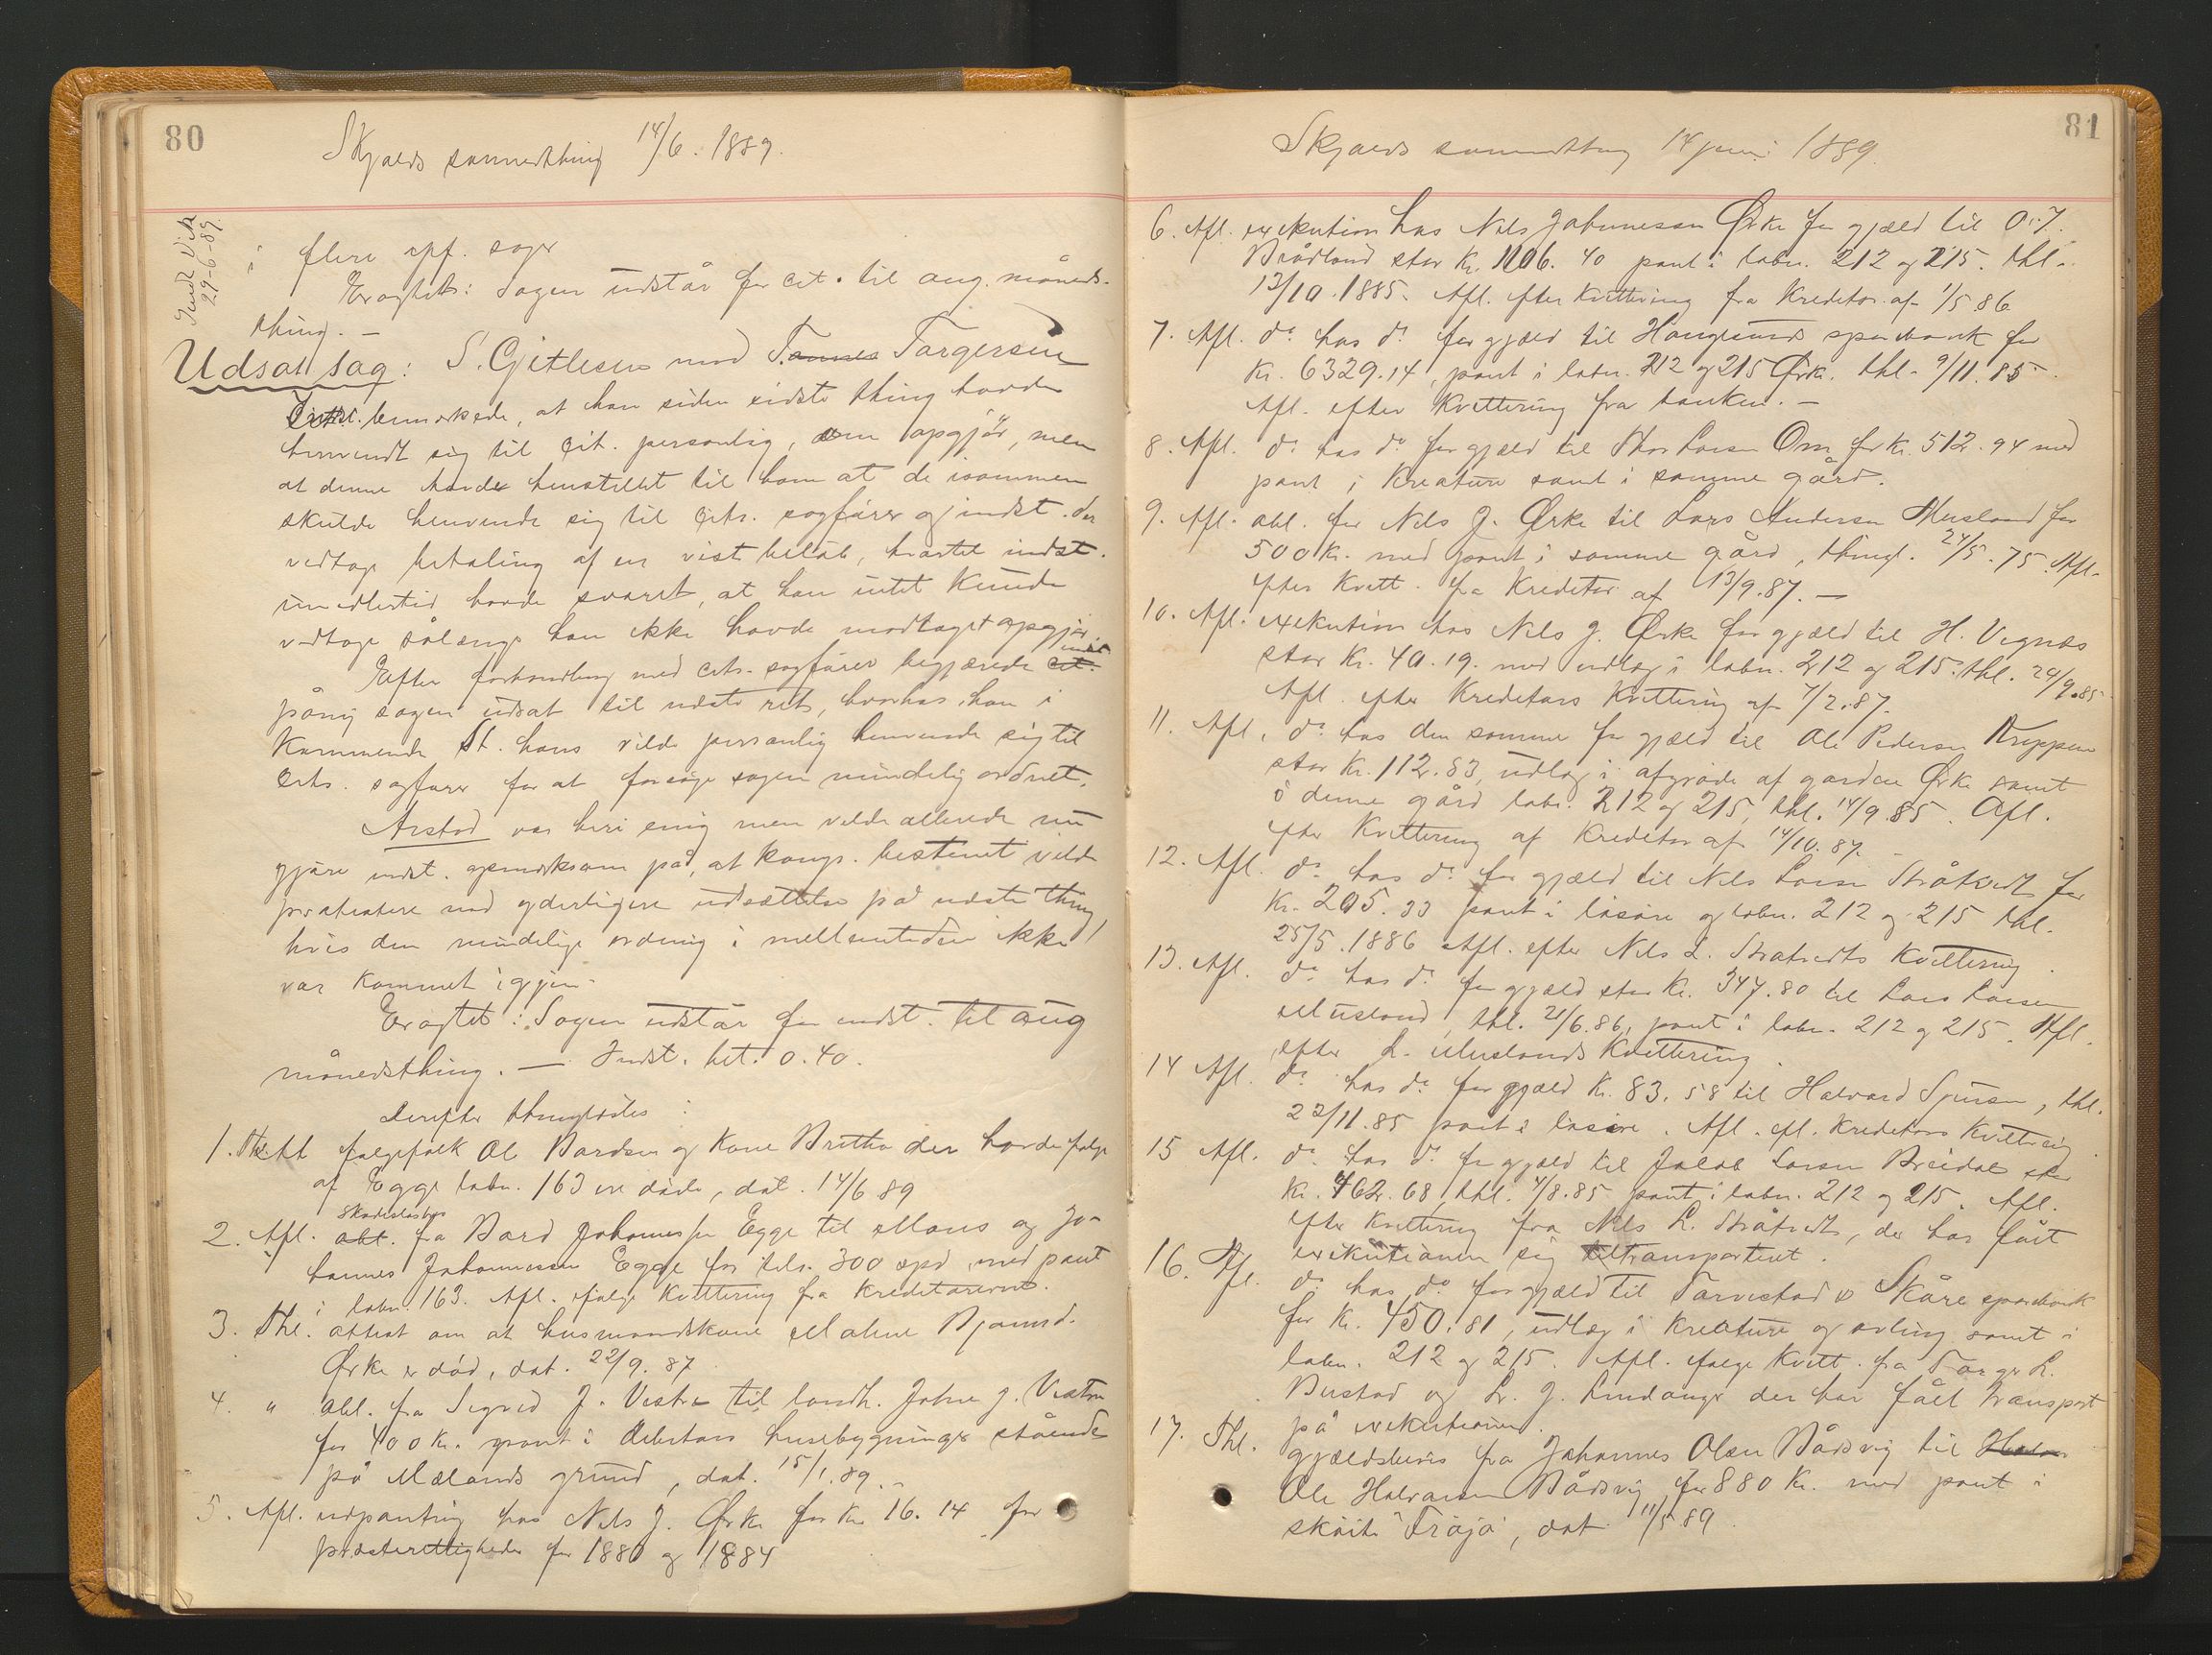 80
Skjolds sommerthing 14/6. 1889.
Indt Vik
29-6-89.
i flere opf. sager
Eragtet: Sagen udstår for cit. til aug. måneds-
thing. -
Udsat sag: S. Gitlesen mod Torgersen
bemærkede, at han siden sidste thing havde
henvendt sig til Cit. personlig, om opgjör, men
at denne havde henstillet til ham at de isammen
skulde henvende sig til Cits. sagförer og indst. der
vedtage betaling af en vist belöb, hvortil indst.
imidlertid havde svaret, at han intet kunde
vedtage sålænge han ikke havde modtaget opgjör.
Efter forhandling med cits. sagförer begjærede indst.
påny sagen udsat til næste ret, hvorhos han i
kommende St. hans vilde personlig henvende sig til
Cits. sagförer for at forsöge sagen mindelig ordnet.
Arstad var heri enig men vilde allerede nu
gjöre indst. opmærksom på, at kongr. bestemt vilde
protestere mod yderligere udsættelse på næste thing,
hvis den mindelige ordning i mellemtiden ikke
var kommet igjen.
Eragtet: Sagen udstår for indst. til aug
månedsthing. - Indst. bet. 0.40.
Derefter thinglæstes:
1. Att folgefolk Ole Bardsen og kone Britha der havde folge
af Egge labn. 163 ere döde, dat. 14/6 89
2. Afl. skadeslösbr. obl. fra Bard Johannessen Egge til Mons og Jo-
hannes Johannessen Egge for tils. 300 spd med pant
i labn. 163. Afl. ifölge kvittering fra kreditorerne.
3. Thl. attest om at husmandskone Malene Bjömsd.
Örke er död, dat. 22/9. 87
4. " obl. fra Sigvod J. Vestre til landh. John J. Vestre
for 400 kr. pant i debitors husebygninger stående
på Mælands grund, dat. 15/1. 89. -
5. Afl. udpantning hos Nels J. Örke for kr. 16.14 for
præsterettigheder for 1880 og 1884
81
Skjolds sommerthing 14 juni 1889.
6. Afl. exekution hos Nels Johannessen Örke for gjæld til O. T.
Brådland stor kr. 1106. 40 pant i labn. 212 og 215. thl.
13/10. 1885. Afl. efter kvittering fra kreditor af 1/5 86
7. Afl. do hos do for gjæld til Haugesunds sparebank for
kr. 6329.14, pant i labn. 212 og 215 Örke. thl. 9/11. 85.
Afl. efter kvittering fra banken. -
8. Afl. do hos do for gjæld til Thor Larsen Om for kr. 512.94 med
pant i kreature samt i samme gård.
9. Afl. obl. fra Nels J. Örke til Lars Andersen Musland for
500 kr. med pant i samme gård, thingl. 24/5. 75. Afl.
efter kvitt. fra kreditor af 13/9. 87. -
10. Afl. exekution hos Nels J. Örke for gjæld til H. Vegnæs
stor kr. 40.19. med udlæg i labn. 212 og 215. thl. 24/9. 85
Afl. efter kreditors kvittering af 7/2. 87.
11. Afl. do hos den samme for gjæld til Ole Pedersen
stor kr. 112.83, udlæg i afgröde af garden Örke samt
i denne gård labn. 212 og 215, thl. 14/9. 85. Afl.
efter kvittering af kreditor af 14/10. 87. -
12. Afl. do hos do for gjæld til Nels Larsen Stråtvedt for
kr. 205.33 pant i lösöre og labn. 212 og 215 thl.
25/5. 1886 Afl. efter Nels L. Stråtvedts kvittering.
13. Afl. do hos do for gjæld stor kr. 347.80 til Lars Larsen
Musland, thl. 21/6. 86, pant i labn. 212 og 215. Afl.
efter L. Muslands kvittering.
14 Afl. do hos do for gjæld kr. 83.58 til Halvard Sjursen, thl.
23/11. 85 pant i lösöre. Afl. eft. kreditors kvittering.
15 Afl. do hos do for gjæld til Jakob Larsen Breidal stor
kr. 462.68, thl. 4/8. 85 pant i labn. 212 og 215. Afl.
efter kvittering fra Nels L. Stråtvedt, der har fået
exekutionen sig transporteret.
16. Afl. do hos do for gjæld til Torvestad & Skåre sparebank
for kr. 450.81, udlæg i kreature og avling samt i
labn. 212 og 215. Afl. ifölge kvitt. fra Torger L.
Bustad og L. J. Lindanger der har fået transport
på exekutionen.
17. Thl. gjældsbrev fra Johannes Olsen Bådsvig til
Ole Halvarsen Bådsvig for 880 kr. med pant i
sköite "Fröja", dat. 11/5 89.